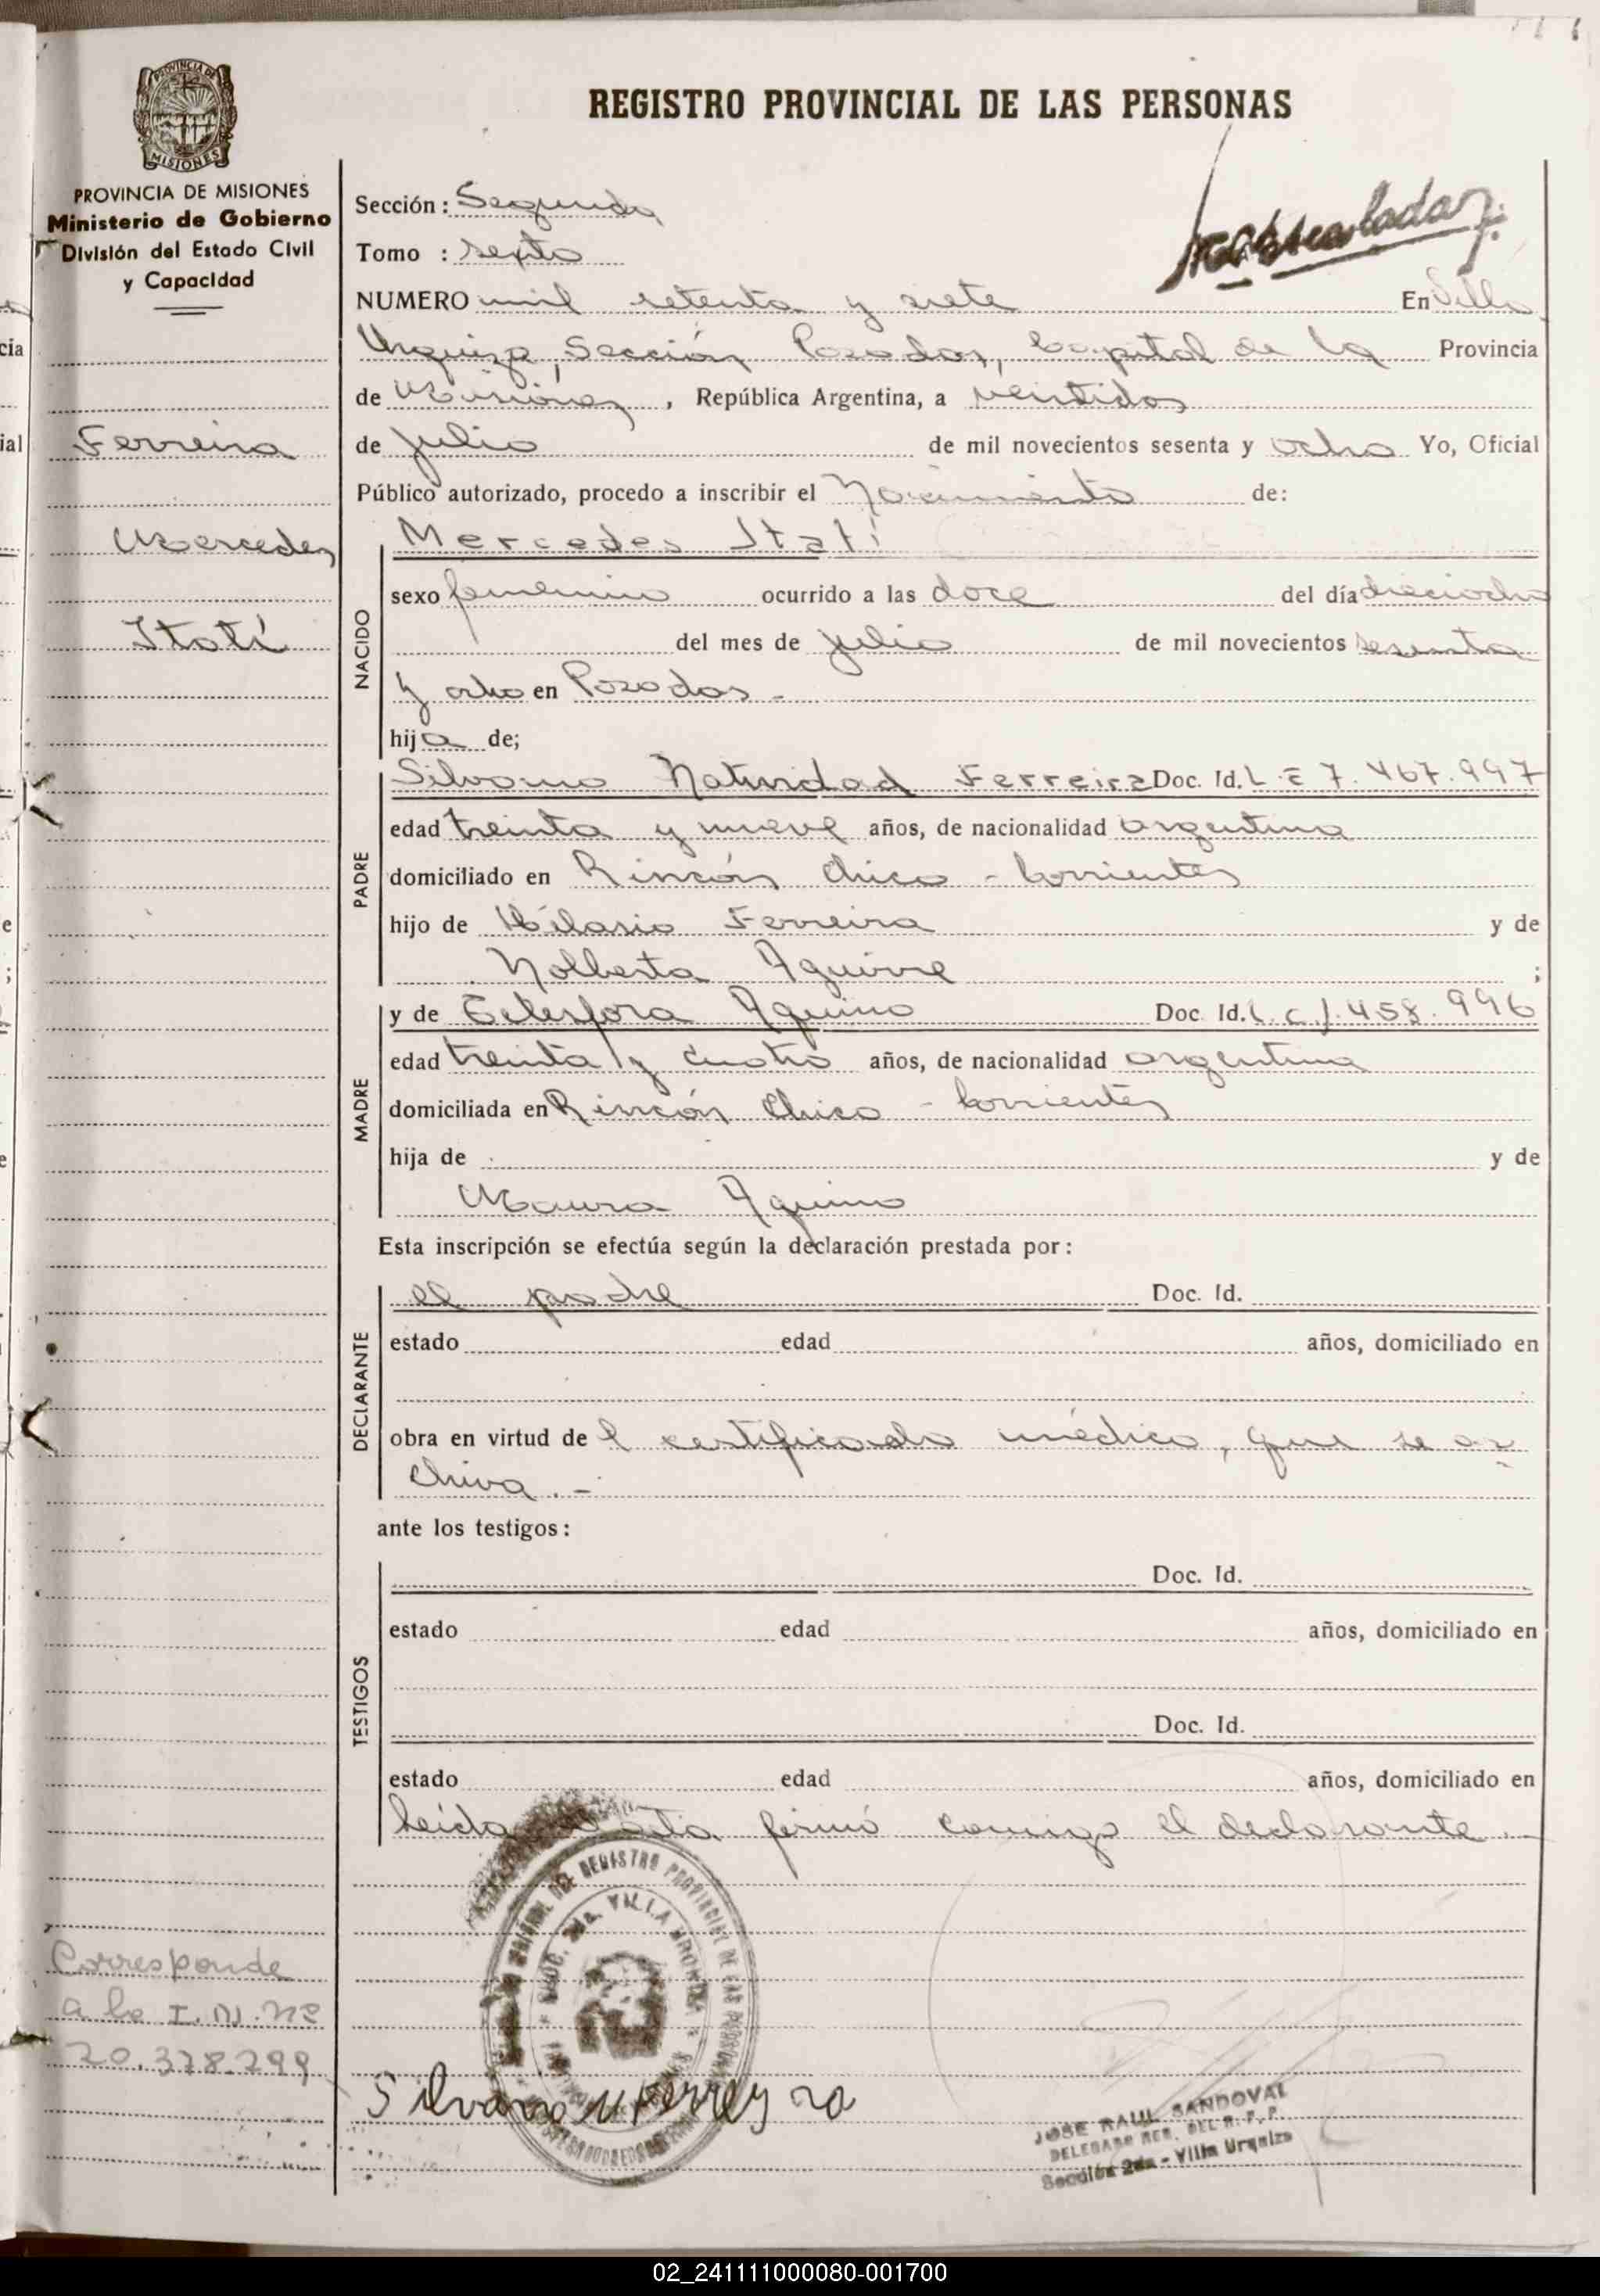 REGISTRO PROVINCIAL DE LAS PERSONAS
PROVINCIA DE MISIONES
PROVINCIA DE MISIONES
Ministerio de Gobierno
División del Estado Civil
y Capacidad
Sección: Segunda
Tomo : sexto
NUMERO mil setenta y siete En Villa
Urquiza, Sección Posadas, Capital de la Provincia
de Misiones, República Argentina, a veintidos
Ferreira
de julio de mil novecientos sesenta y ocho Yo, Oficial
Público autorizado, procedo a inscribir el Nacimiento de:
Mercedes
Itatí
NACIDO
Mercedes Itatí
sexo femenino ocurrido a las doce del día dieciocho
del mes de julio de mil novecientos sesenta
y ocho en Posadas -
hija de;
PADRE
Silvano Natividad Ferreira Doc. Id. L E 7.467.997
edad treinta y nueve años, de nacionalidad argentina
domiciliado en Rincón Chico - Corrientes
hijo de Hilario Ferreira y de
Nolberta Aguirre ;
MADRE
y de Telesfora Aquino Doc. Id. L.C 1.458.996
edad treinta y cuatro años, de nacionalidad argentina
domiciliada en Rincón Chico - Corrientes
hija de y de
Maura Aquino
Esta inscripción se efectúa según la declaración prestada por:
DECLARANTE
el padre Doc. Id.
estado edad años, domiciliado en
obra en virtud del certificado médico, que se ar
chiva. -
ante los testigos:
TESTIGOS
Doc. Id.
estado edad años, domiciliado en
Doc. Id.
estado edad años, domiciliado en
Leída acta firmó conmigo el declarante.
Corresponde
a la I.N. Nº
20.378.299
Silvano N Ferreyra
JOSE RAUL SANDOVAL
DELEGADO REG. DEL R. P. P.
Sección 2da - Villa Urquiza
02_241111000080-001700